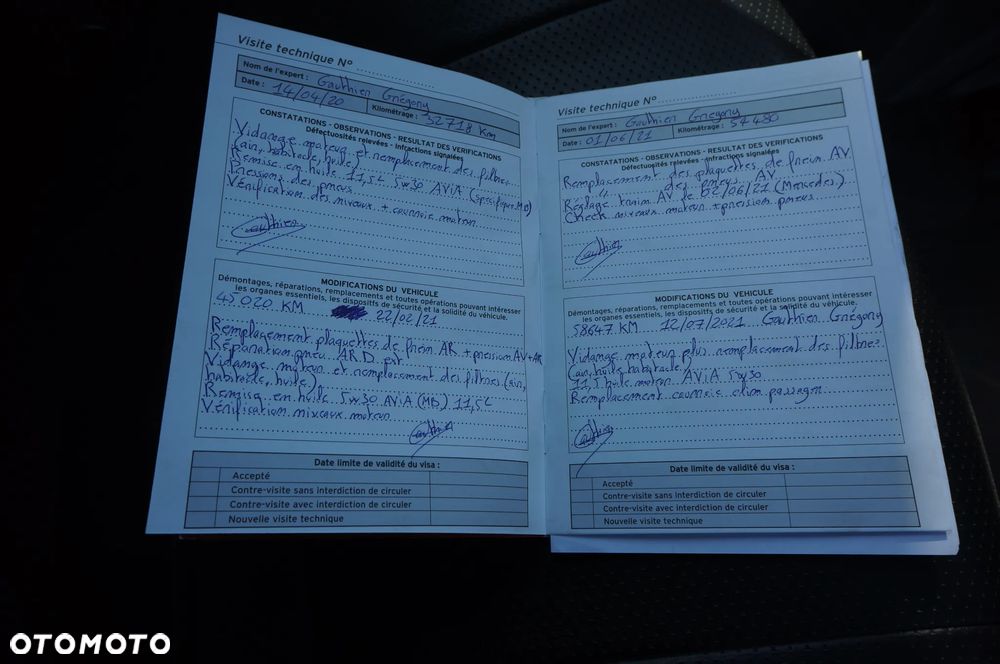 Visite technique N°
Nom de l'expert : Gauthier Grégory
Date : 14/04/20 Kilométrage : 52718 Km
CONSTATATIONS - OBSERVATIONS - RESULTAT DES VERIFICATIONS
Défectuosités relevées - Infractions signalées
Vidange moteur et remplacement des filtres
(air, habitacle, huile)
Remise en huile 11,5L 5w30 AViA (Spécifique MB)
Pressions des pneus
Vérification des niveaux + courroie moteur
Gauthier
MODIFICATIONS DU VEHICULE
Démontages, réparations, remplacements et toutes opérations pouvant intéresser
les organes essentiels, les dispositifs de sécurité et la solidité du véhicule.
45020 KM 22/02/21
Remplacement plaquettes de frein AR + pression AV + AR
Réparation pneu AR.D ext
Vidange moteur et remplacement des filtres (air,
habitacle, huile)
Remise en huile 5w30 AViA (Mb) 11,5L
Vérification niveaux moteur
Gauthier
Date limite de validité du visa :
Accepté
Contre-visite sans interdiction de circuler
Contre-visite avec interdiction de circuler
Nouvelle visite technique
Visite technique N°
Nom de l'expert : Gauthier Gregory
Date : 01/06/21 Kilométrage : 57480
CONSTATATIONS - OBSERVATIONS - RESULTAT DES VERIFICATIONS
Défectuosités relevées - Infractions signalées
Remplacement des plaquettes de frein AV
" des pneus AV
Réglage train AV le 02/06/21 (Mercedes)
Check niveaux moteur + pression pneus
Gauthier
MODIFICATIONS DU VEHICULE
Démontages, réparations, remplacements et toutes opérations pouvant intéresser
les organes essentiels, les dispositifs de sécurité et la solidité du véhicule.
58647 KM 12/07/2021 Gauthier Grégory
Vidange moteur plus remplacement des filtres
(air, huile, habitacle)
11,5 huile moteur AViA 5w30
Remplacement courroie clim passager
Gauthier
Date limite de validité du visa :
Accepté
Contre-visite sans interdiction de circuler
Contre-visite avec interdiction de circuler
Nouvelle visite technique
OTOMOTO